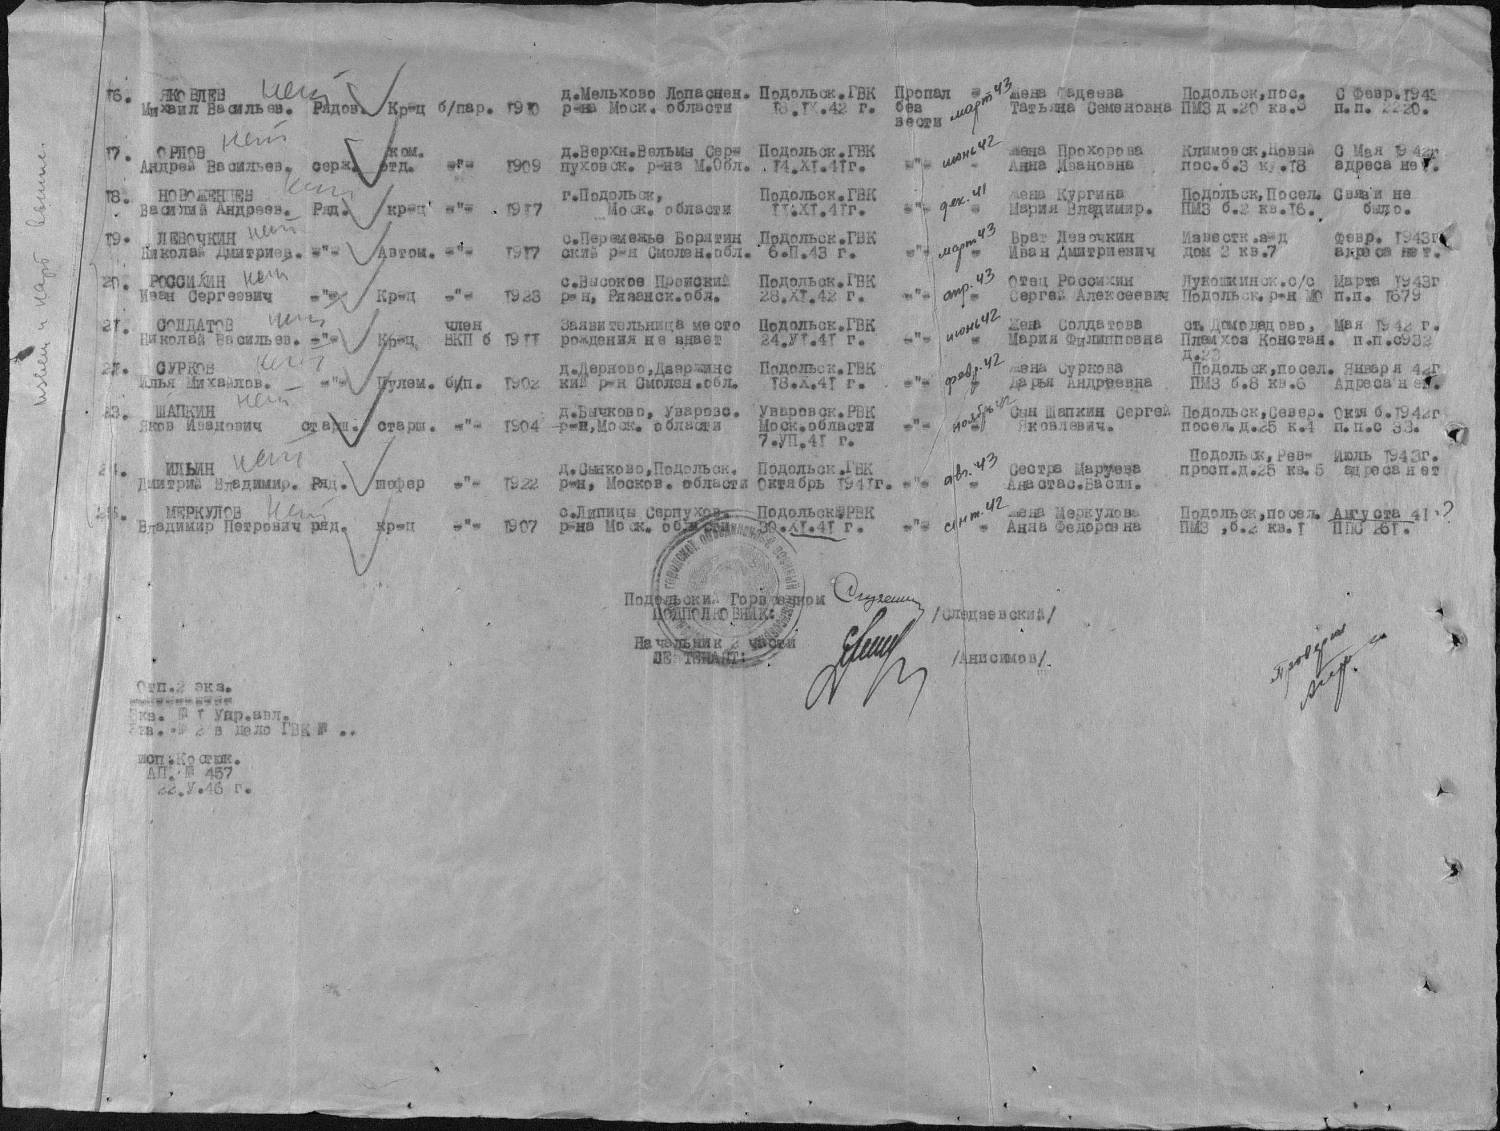 16. ЯКОВЛЕВ нет д.Мельхово Лопаснен. Подольск.ГВК Пропал март 43 жена Фадеева Подольск,пос. С Февр.1942
Михаил Васильев. Рядов. Кр-ц б/пар. 1910 р-на Моск. области 18.IX.42 г. без Татьяна Семеновна ПМЗ д.20 кв.3 п.п. 2220.
вести
17. ОРЛОВ нет ком. д.Верхн.Вельми Сер- Подольск.ГВК июнь 42 жена Прохорова Климовск, С Мая 1942г
Андрей Васильев. серж. отд. -"- 1909 пуховск. р-на М.Обл. 14.XI.41г. -"- Анна Ивановна пос.б.3 кв.18 адреса нет.
18. НОВОЖЕНЦЕВ нет г.Подольск, Подольск.ГВК дек. 41 жена Кургина Подольск,Посел. Связи не
Василий Андреев. Ряд. кр-ц -"- 1917 Моск. области 11.XI.41г. -"- Мария Владимир. ПМЗ б.2 кв.16. было.
19. ЛЕВОЧКИН нет с.Перемежье Борятин Подольск.ГВК март 43 Брат Левочкин Известк.з-д февр. 1943г
Николай Дмитриев. -"- Автом. -"- 1917 ский р-н Смолен.обл. 6.П.43 г. -"- Иван Дмитриевич дом 2 кв.7 адреса нет.
20. РОССИХИН нет с.Высокое Пронский Подольск.ГВК апр. 43 Отец Россихин Лукошкинск.с/с Марта 1943г
Иван Сергеевич -"- Кр-ц -"- 1923 р-н, Рязанск.обл. 28.XI.42 г. -"- Сергей Алексеевич Подольск.р-н МО п.п. 1679
21. СОЛДАТОВ нет член Заявительница место Подольск.ГВК июнь 42 Жена Солдатова ст.Домодедово, Мая 1942 г.
Николай Васильев. -"- Кр-ц ВКП б 1911 рождения не знает 24.УI.41 г. -"- Мария Филипповна Племхоз Констан. п.п.с932
д.23
22. СУРКОВ нет д.Дерново,Дзержинс Подольск.ГВК февр. 42 жена Суркова Подольск,посел. Января 42г.
Илья Михайлов. -"- Пулем. б/п. 1902 кий р-н Смолен.обл. 18.X.41 г. -"- Дарья Андреевна ПМЗ б.8 кв.6 Адреса нет.
23. ШАПКИН нет д.Бычково, Уваровс. Уваровск.РВК ноябрь 42 Сын Шапкин Сергей Подольск,Север. Октяб.1942г
Яков Иванович старш. старш. -"- 1904 р-н,Моск. области Моск.области -"- Яковлевич. посел.д.25 к.4 п.п.с 33.
7.УП.41 г.
Подольск,Рев- Июль 1943г.
24. ИЛЬИН нет д.Сынково,Подольск. Подольск.ГВК авг. 43 Сестра Маруева просп.д.25 кв.5 адреса нет
Дмитрий Владимир. Ряд. шофер -"- 1922 р-н, Москов. области Октябрь 1941г. -"- Анастас.Васил.
25. МЕРКУЛОВ нет с.Липицы Серпухов. Подольск.РВК сент. 42 жена Меркулова Подольск,посел. Августа 41 г?
Владимир Петрович ряд. кр-ц -"- 1907 р-на Моск. области 30.XI.41 г. -"- Анна Федоровна ПМЗ ,б.2 кв.1 ППС 261.
Подольский Горвоенком
ПОДПОЛКОВНИК: /Следзевский/
Начальник 2 части
ЛЕЙТЕНАНТ: /Анисимов/
Отп.2 экз.
Экз. № 1 Упр.
Экз. № 2 в дело ГВК № ..
исп.Костюк.
АП. № 457
22.У.46 г.